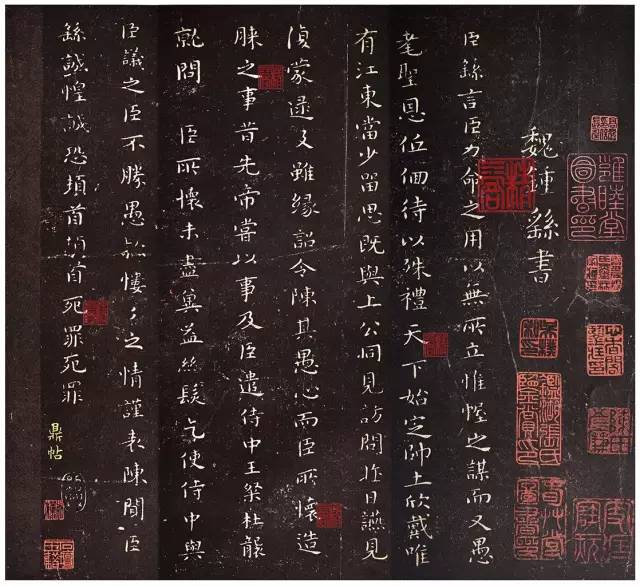 魏鍾繇書
臣繇言臣力命之用以無所立惟幄之謀而又愚
耄聖恩低佪待以殊禮 天下始定帥土欣戴唯
有江東當少留思既與上公同見訪問昨日讌見
復蒙逮及雖緣詔令陳其愚心而臣所懷造
膝之事昔先帝嘗以事及臣遣侍中王粲杜襲
就問 臣所懷未盡冀益絲髮乞使侍中與
臣議之臣不勝愚款慺々之情謹表陳聞臣
繇誠惶誠恐頓首頓首死罪死罪
鼎帖